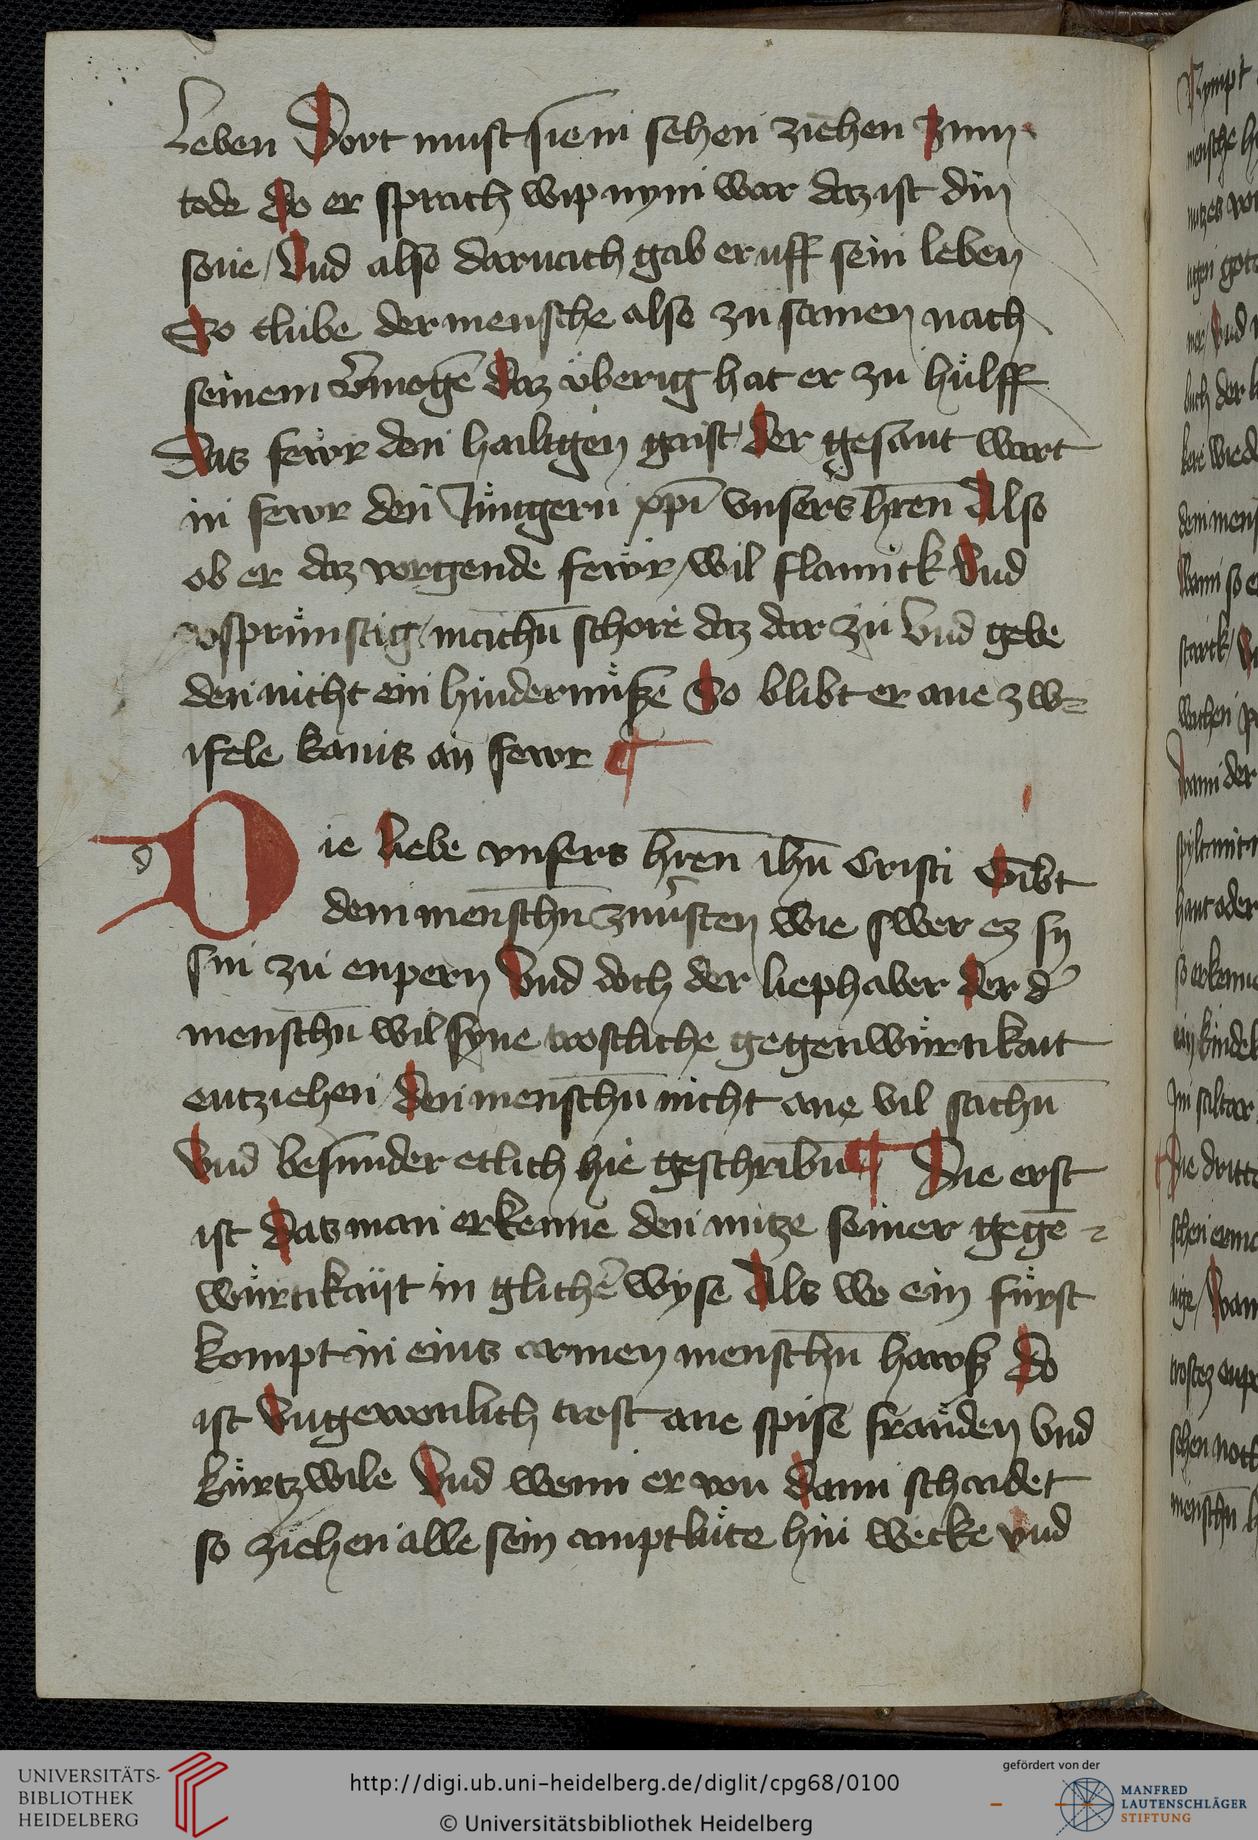 Leben Dort must sie in sehen ziehen zum
tode do er sprach wip nym war daz ist din
sone / Vnd also darnach gab er uff sein leben
So clube der mensche also zu samen nach
seinem v̄mogē daz v̈berig hat er zu hülff
Das fewr den hailigen gaist der gesant wart
in fewr den Jüngern xp̄i vnsers hr̄en Also
ob er daz vorgende fewr / wil flamick Vnd
schore daz dar zu Vnd gebe
den nicht ein hindernüsze So blibt er ane zw=
ifele kains an fewr
d
Die liebe vnsers hr̄en ih̄u Cristi Gibt
dem menschn̄ wie swer ez sy
sin zu enpern Vnd doch der liephaber der d'
menschn̄ wil syne trostliche gegenwürtikait
entziehen den menschn̄ nicht ane vil sachn̄
Vnd besunder etlich hie geschribn̄ Die erst
ist das man erkenne den nutze seiner gegē=
würtikait in glicher wyse Als wo ein fürst
kompt in eins armen menschn̄ hawsz do
ist Vngewonlich trost ane spise fraüden Vnd
kürtzwile Vnd wenn er von dann schaidet
so ziehen alle sein amptlüte hin wecke vnd
UNIVERSITÄTS-
BIBLIOTHEK
HEIDELBERG
http://digi.ub.uni-heidelberg.de/diglit/cpg68/0100
© Universitätsbibliothek Heidelberg
gefördert von der
MANFRED
LAUTENSCHLÄGER
STIFTUNG